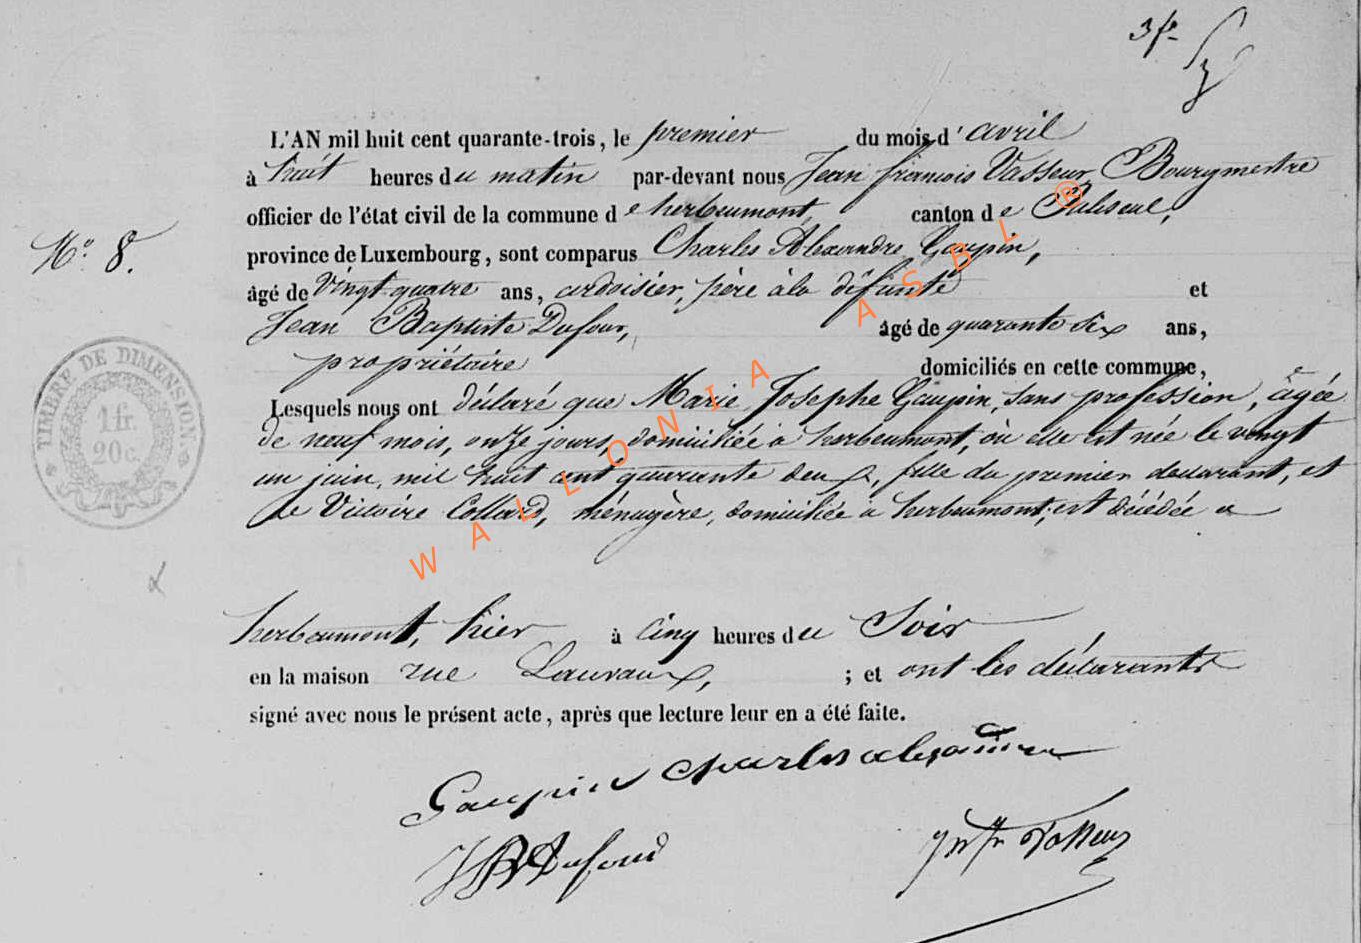 3 fe
L'AN mil huit cent quarante-trois, le premier du mois d'avril
à huit heures du matin par-devant nous Jean françois Vasseur Bourgmestre
officier de l'état civil de la commune de herbeumont, canton de Paliseul,
N° 8.
province de Luxembourg, sont comparus Charles Alexandre Gaupin,
âgé de Vingt quatre ans, ardoisier, père à la défunte et
Jean Baptiste Dufour, âgé de quarante six ans,
propriétaire domiciliés en cette commune,
Lesquels nous ont déclaré que Marie Josephe Gaupin, sans profession, âgée
de neuf mois, onze jours, domiciliée à herbeumont, où elle est née le vingt
un juin, mil huit cent quarante deux, fille du premier déclarant, et
de Victoire Collard, ménagère, domiciliée à herbeumont, est décédée a
herbeumont, hier à cinq heures du Soir
en la maison rue Lauvaux, ; et ont les déclarants
signé avec nous le présent acte, après que lecture leur en a été faite.
Gaupin charles alexandre
JB Dufour
Jn fr Vasseur
TIMBRE DE DIMENSION.
1 fr.
20 c.
WALLONIA ASBL ®